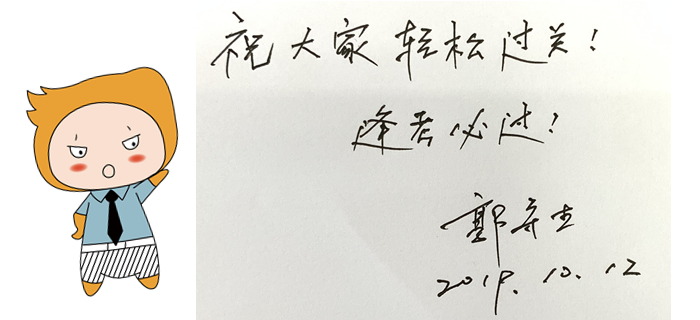 祝大家轻松过关!
逢考必过!
郭
2019.10.12